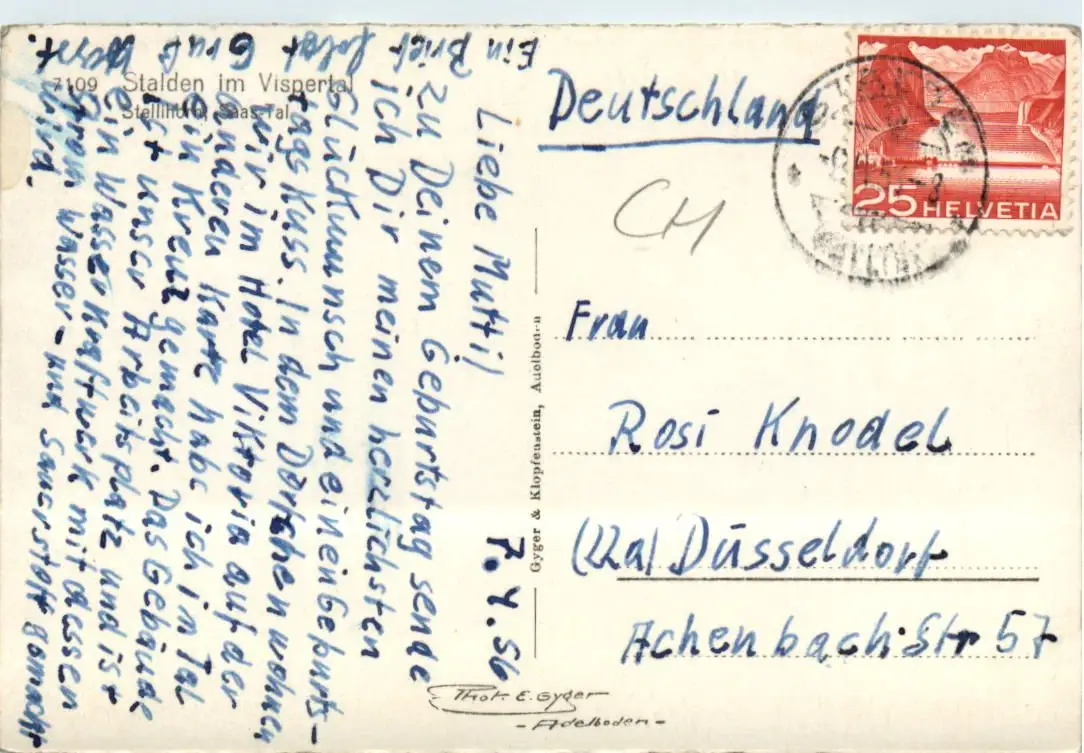 7109 Stalden im Vispertal
Stellihorn, Saas-Tal
7.4.56
Liebe Mutti!
Zu Deinem Geburtstag sende
ich Dir meinen herzlichsten
Glückwunsch und einen Geburts-
tagskuss. In dem Dörfchen wohnen
wir im Hotel Viktoria auf der
anderen Karte habe ich in Tal
ein Kreuz gemacht. Das Gebäude
ist unser Arbeitsplatz und ist
ein Wasserkraftwerk mit dessen
Strom Wasser- und Sauerstoff gemacht
wird.
Ein Brief folgt Gruß Horst.
Gyger & Klopfenstein, Adelboden
Deutschland
25 HELVETIA
CH
Frau
Rosi Knodel
(22a) Düsseldorf
Achenbach Str 57
Phot. E. Gyger
- Adelboden -